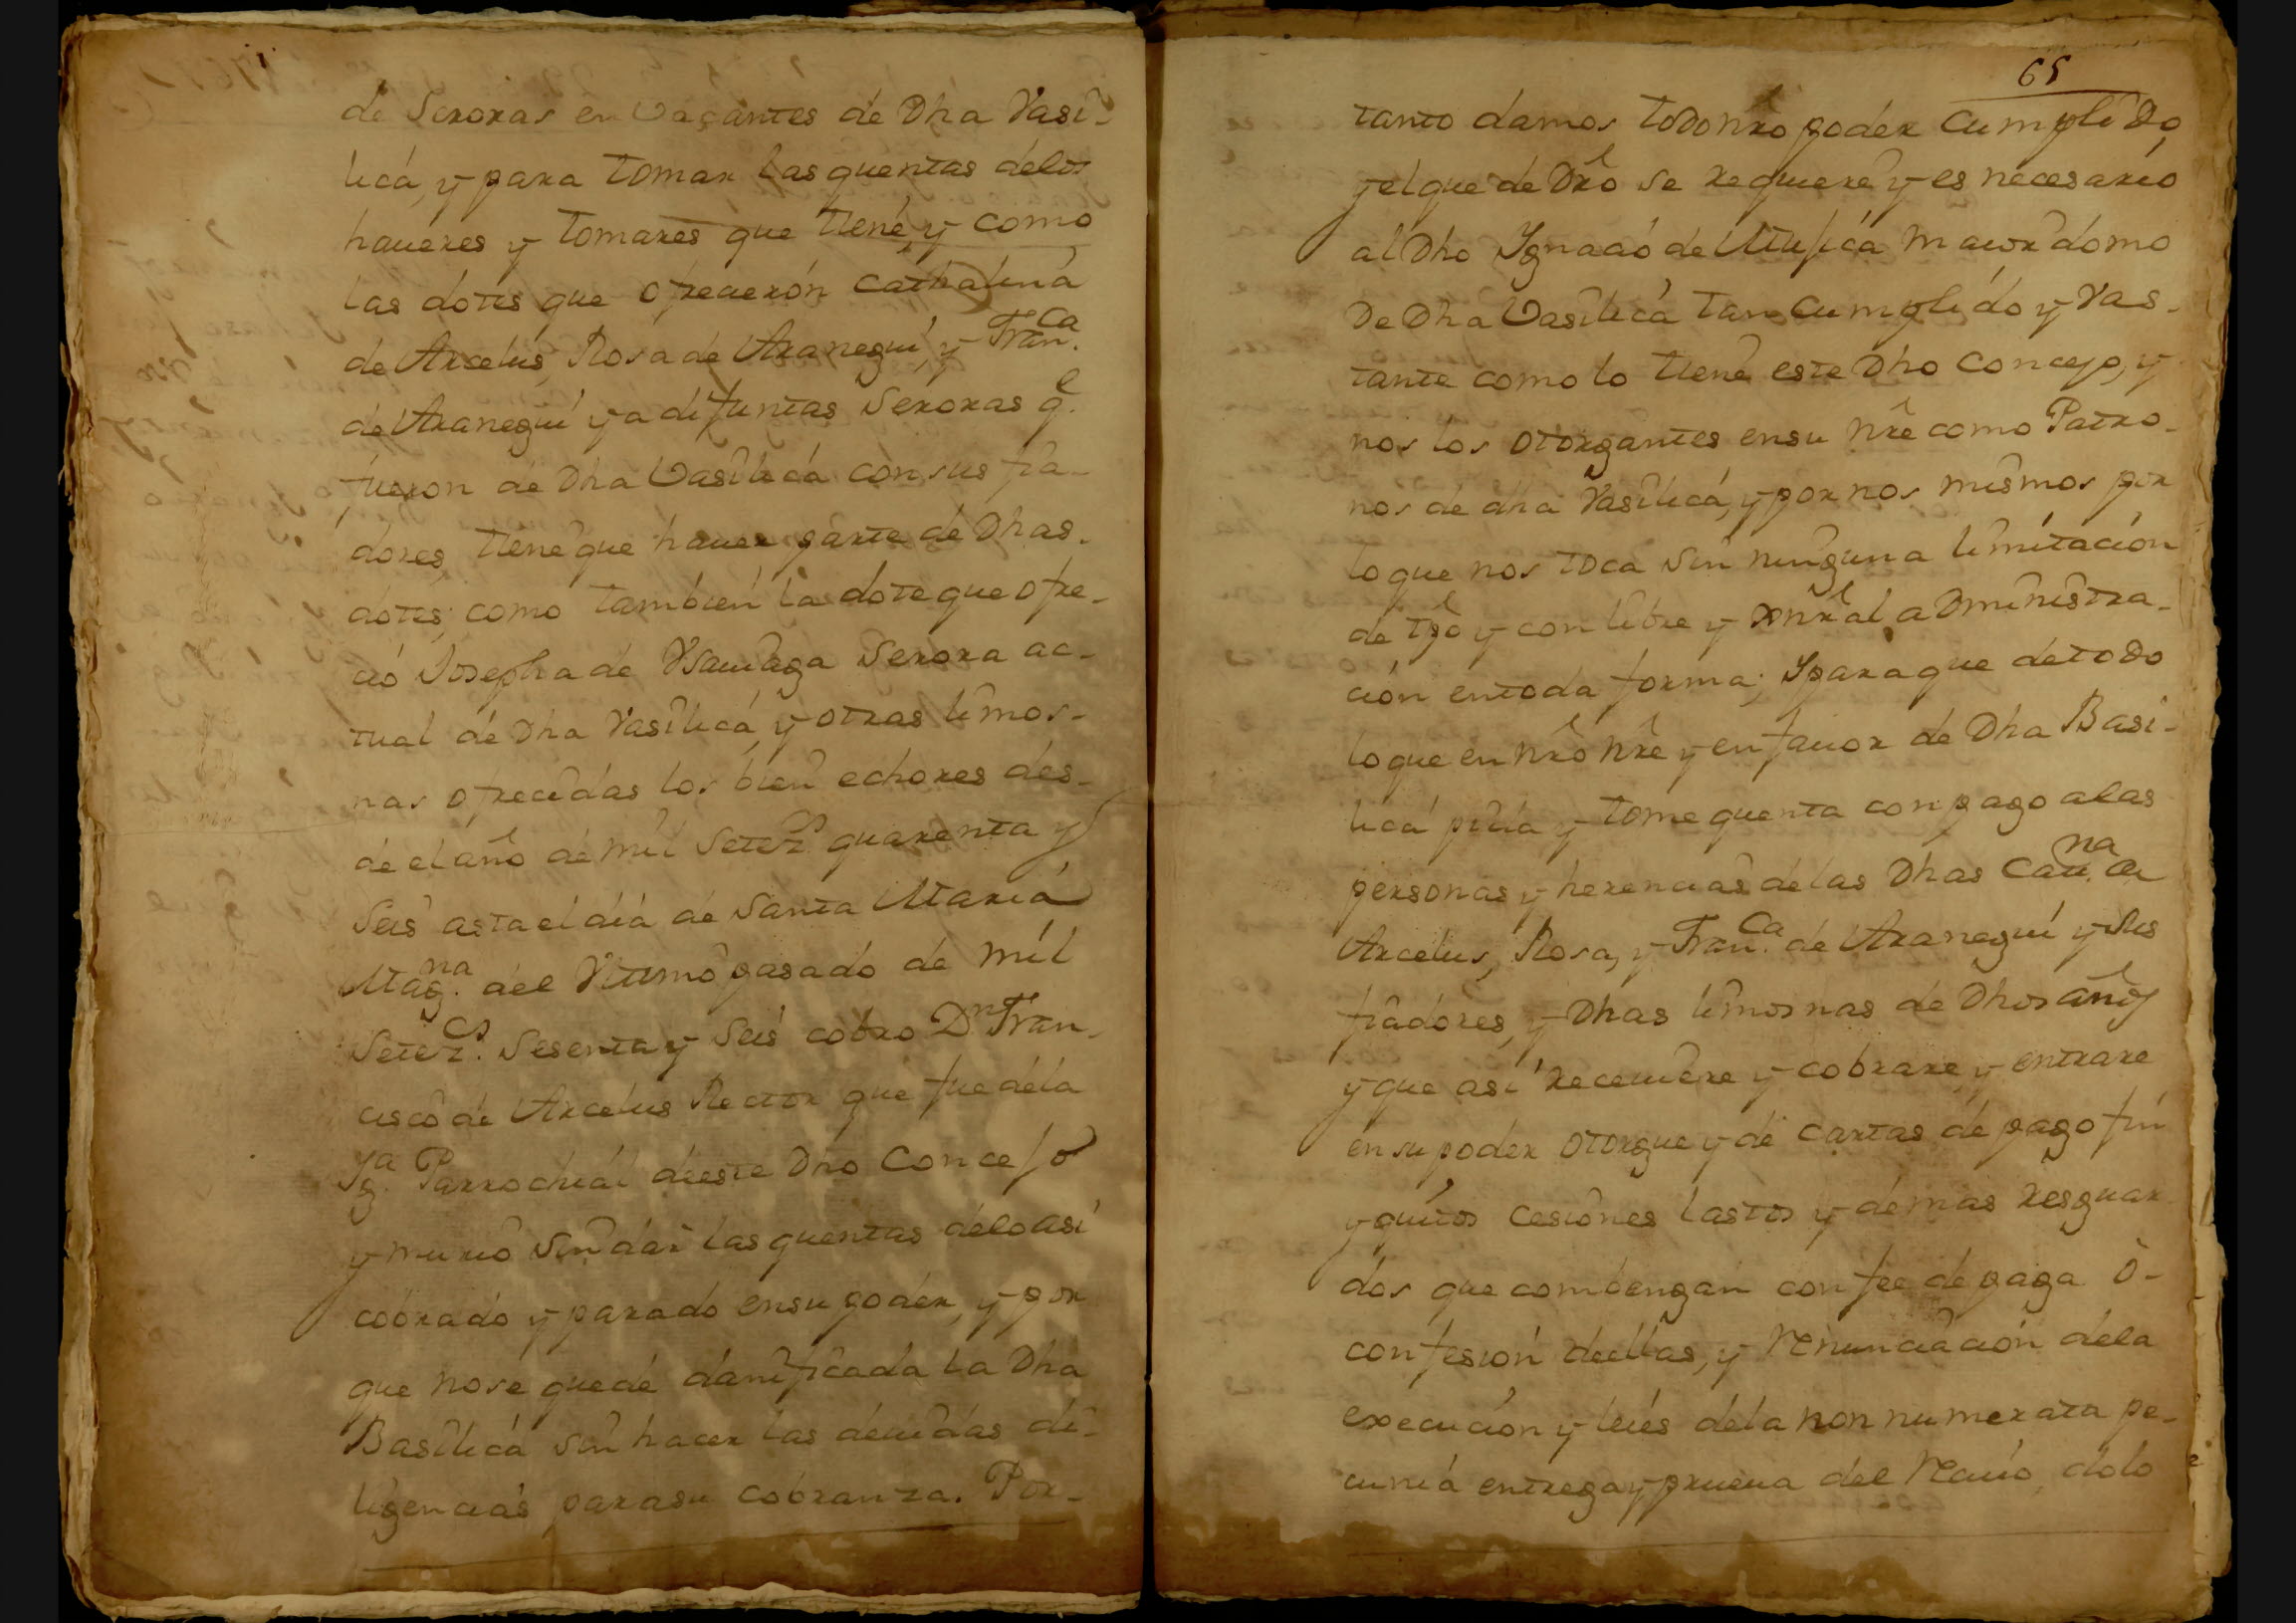 de Seroras en Vacantes de Dha Vasi-
lica, y para tomar las quentas delos
haueres y tomares que tiene, y como
las dotes que ofrecieron Cathalina
de Arcelus, Rosa de Aranegui, y Fran.ca
de Aranegui ya difuntas Seroras q.e
fueron de Dha Vasilica con sus fia-
dores, tiene que hauer parte de Dhas.
dotes; como tambien la dote que ofre-
ció Josepha de Vsauiaga Serora ac-
tual de Dha Vasilica, y otras limos-
nas ofrecidas los bien echores des-
de el año de mil Setez.os quarenta y
Seis asta el dia de Santa Maria
Mag.na del Vltimo pasado de mil
Setez.os Sesenta y Seis cobro D.n Fran-
cisco de Arcelus Rector que fue dela
Yg.a Parrochial deeste Dho Concejo
y murio sin dar las quentas delo asi
cobrado y parado ensu poder, y por
que nose quede danificada la Dha
Basilica sin hacer las deuidas di-
ligencias parasu cobranza. Por-
65
tanto damos todo nro poder Cumplido,
y el que de Dro se requiere y es necesario
al Dho Ygnacio de Mujica maiordomo
De Dha Vasilica tan Cumplido y Vas-
tante como lo tiene este Dho Concejo, y
nos los otorgantes ensu nre como Patro-
nos de dha Vasilica, y por nos mismos por
loque nos toca sin ninguna limitacion
de tpo y con libre y xnral aDministra-
cion entoda forma; Y paraque de todo
loque en nro nre y en fauor de Dha Basi-
lica pida y tome quenta con pago alas
personas y herencias delas Dhas Cath.na de
Arcelus, Rosa, y Fran.ca de Aranegui y sus
fiadores, y Dhas limosnas de Dhos años
y que asi receuiere y cobrare, y entrare
ensu poder otorgue y dé cartas de pago fin
y quitos cesiones lastos y demas resguar
dos que combengan con fee de paga ô-
confesion deellas, y Renunciacion dela
execucion y leies dela non numerata pe-
cunia entrega y prueua del Reciuo, dolo